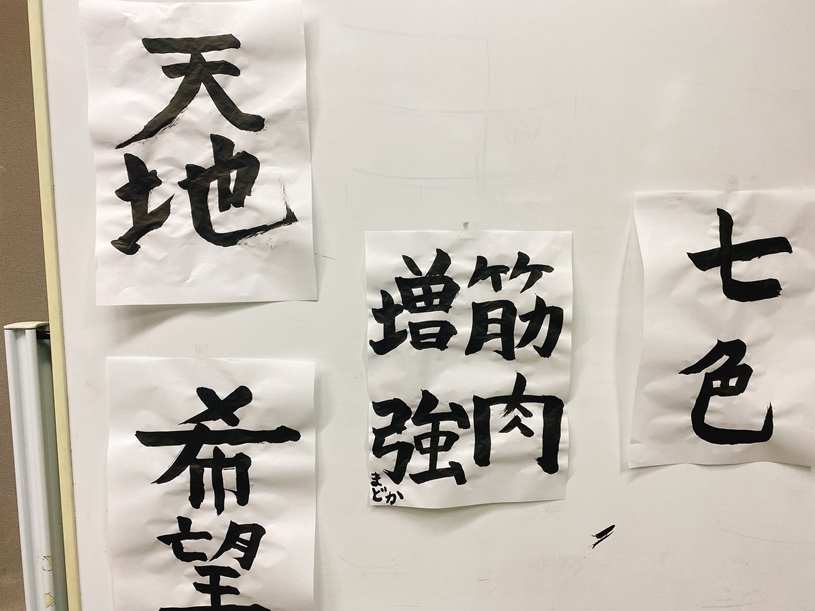 天地
希望
筋肉
増強
まどか
七色